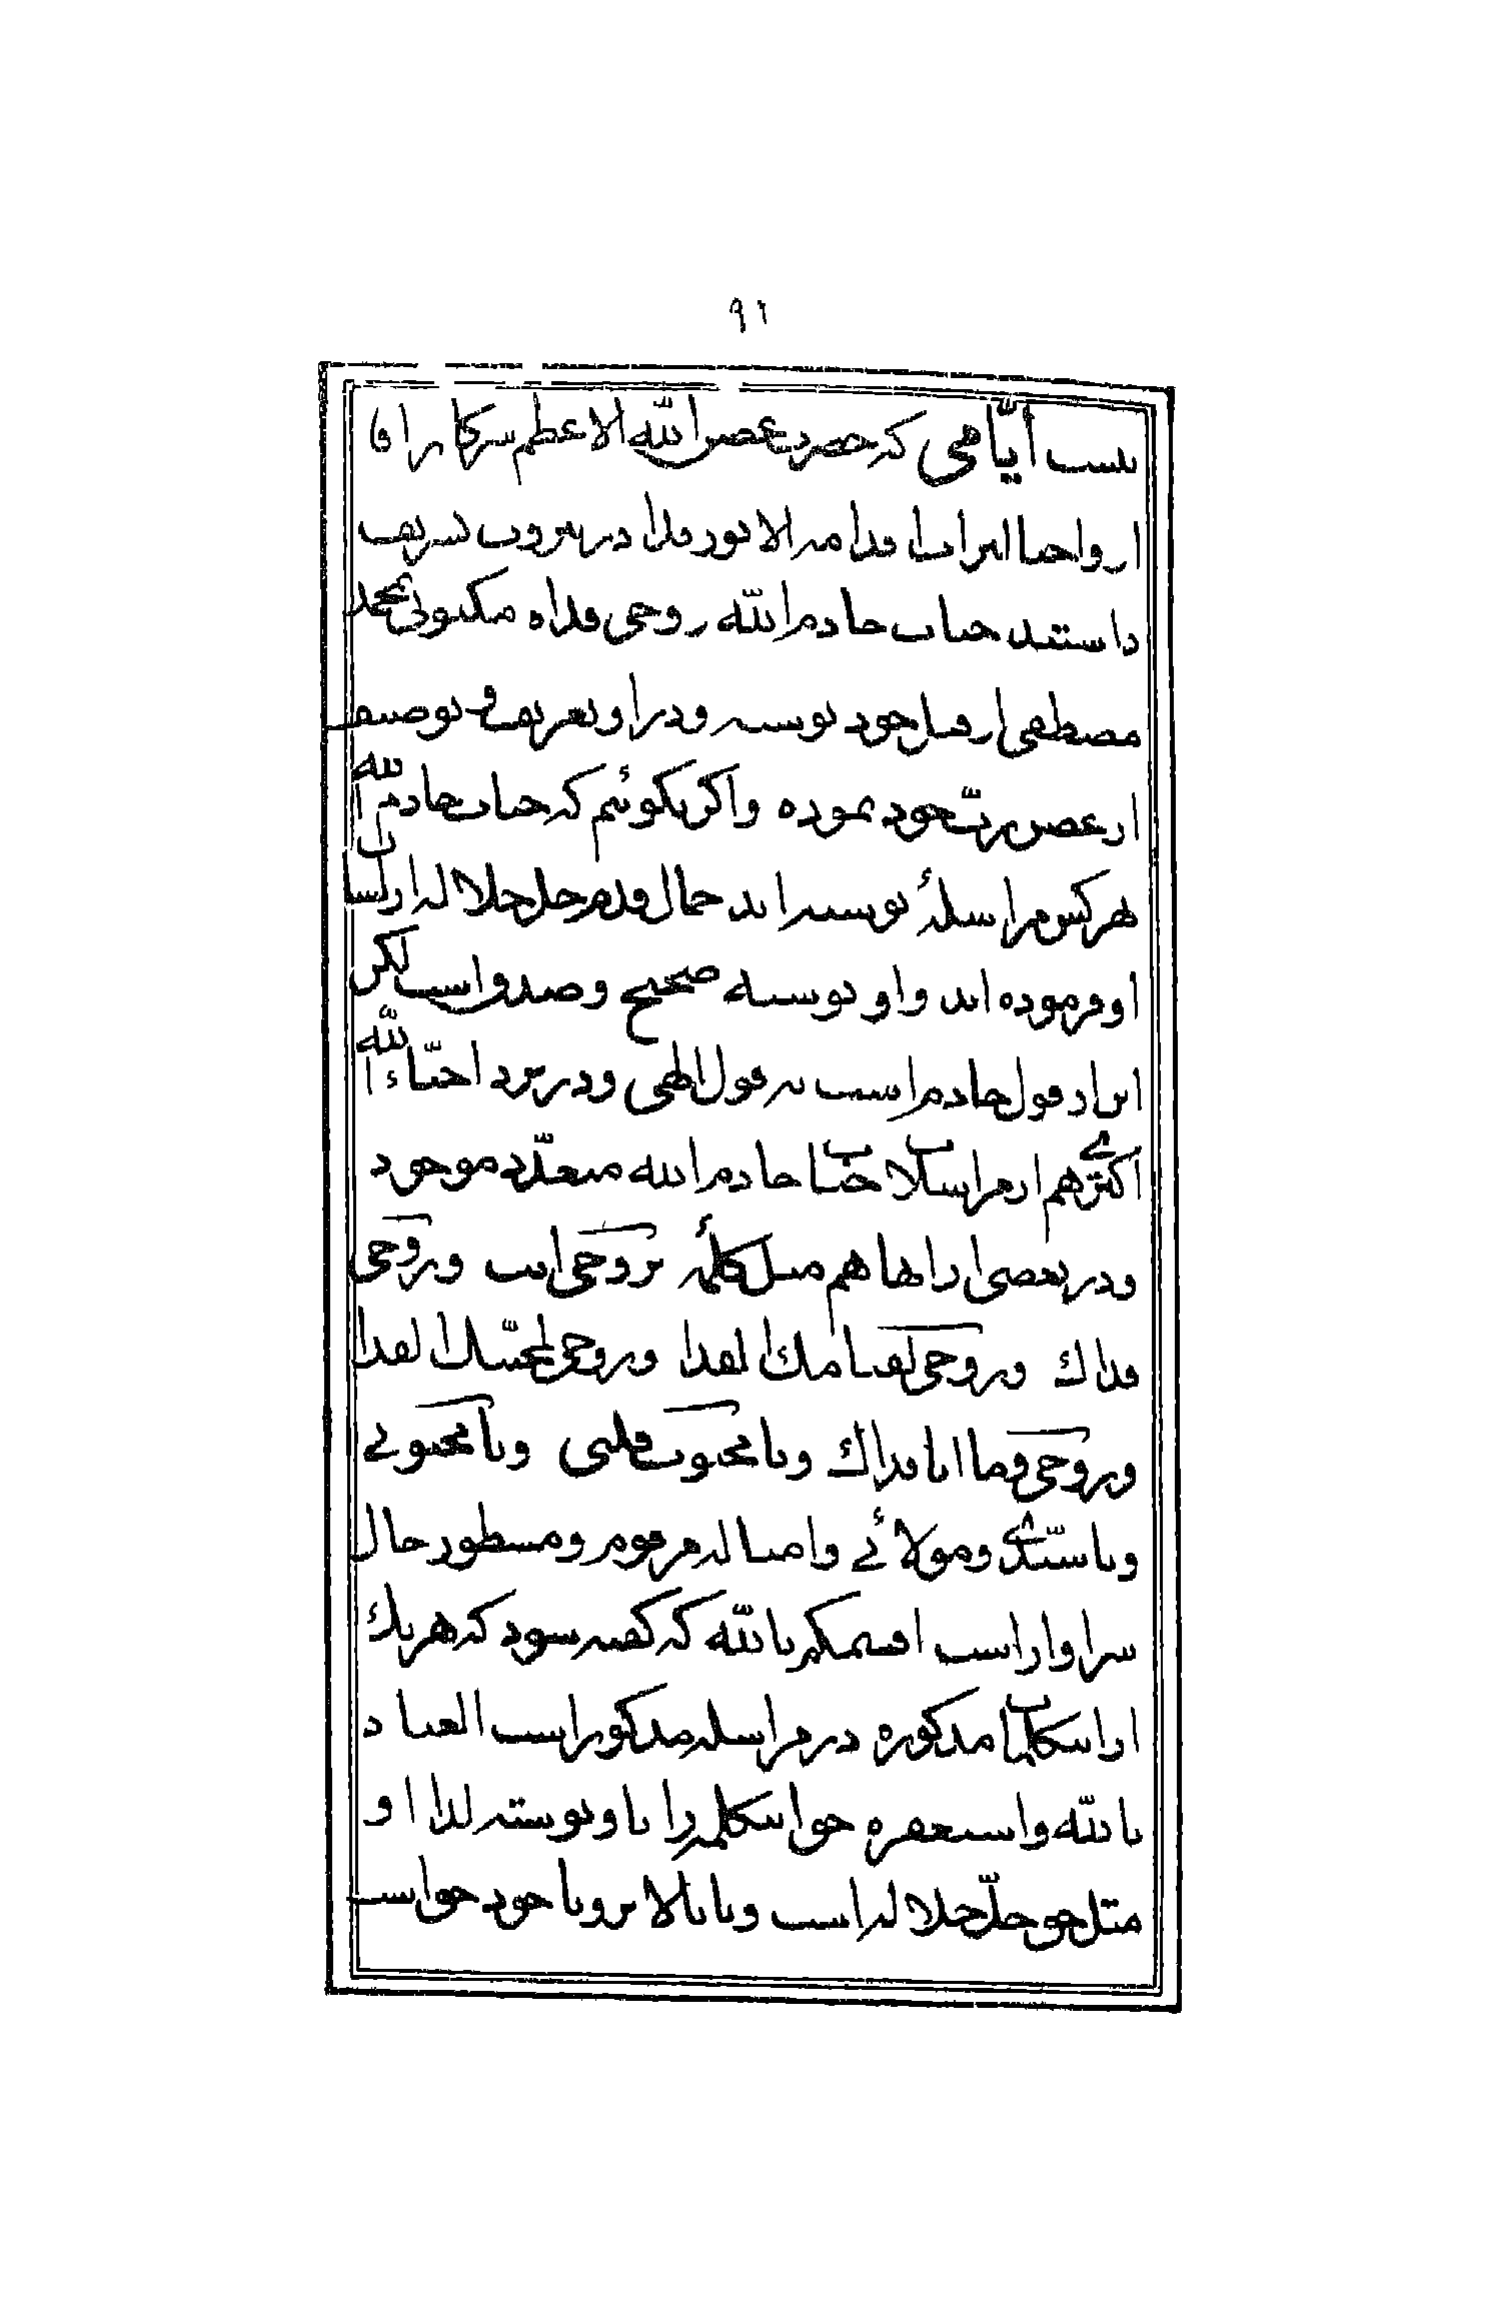 ۹۲
است ایّامی که حضرت غصن الله الاعظم سرکار اقا
ارواحنا لتراب اقدامه الانور فدا در بیروت تشریف
داشتند جناب خادم الله روحی فداه مکتوبی بمحمد
مصطفی از قبل خود نوشته و در او تعریف و توصیف
از غصن ربّ خود نموده و اکر بکوئیم که جناب خادم الله
هر کس مراسلهٔ نوشته اند جمال قدم جل جلاله از لسان
او فرموده اند و او نوشته صحیح و صدق است لکن
این از قول خادم است نه قول الهی و در نزد احبّاء الله
اکثری هم از مراسلات جناب خادم الله متعدّد موجود
و در بعضی از انها هم مثل کلمهٔ بروحی انت و روحی
فداك و روحی لقیامك الفدا و روحی لحبّك الفدا
و روحی و ما انا فداك و یا محبوب قلبی و یا محبوبی
و یا سیّدی و مولائی و امثاله مرقوم و مسطور حال
سزاوار است اقسمکم بالله که کفته شود که هر یك
از این کلمات مذکوره در مراسله مذکور است العیاذ
بالله و استغفره حق این کلمه را باو نوشته لذا او
مثل حق جلّ جلاله است و یا بالاتر و یا خود حق است